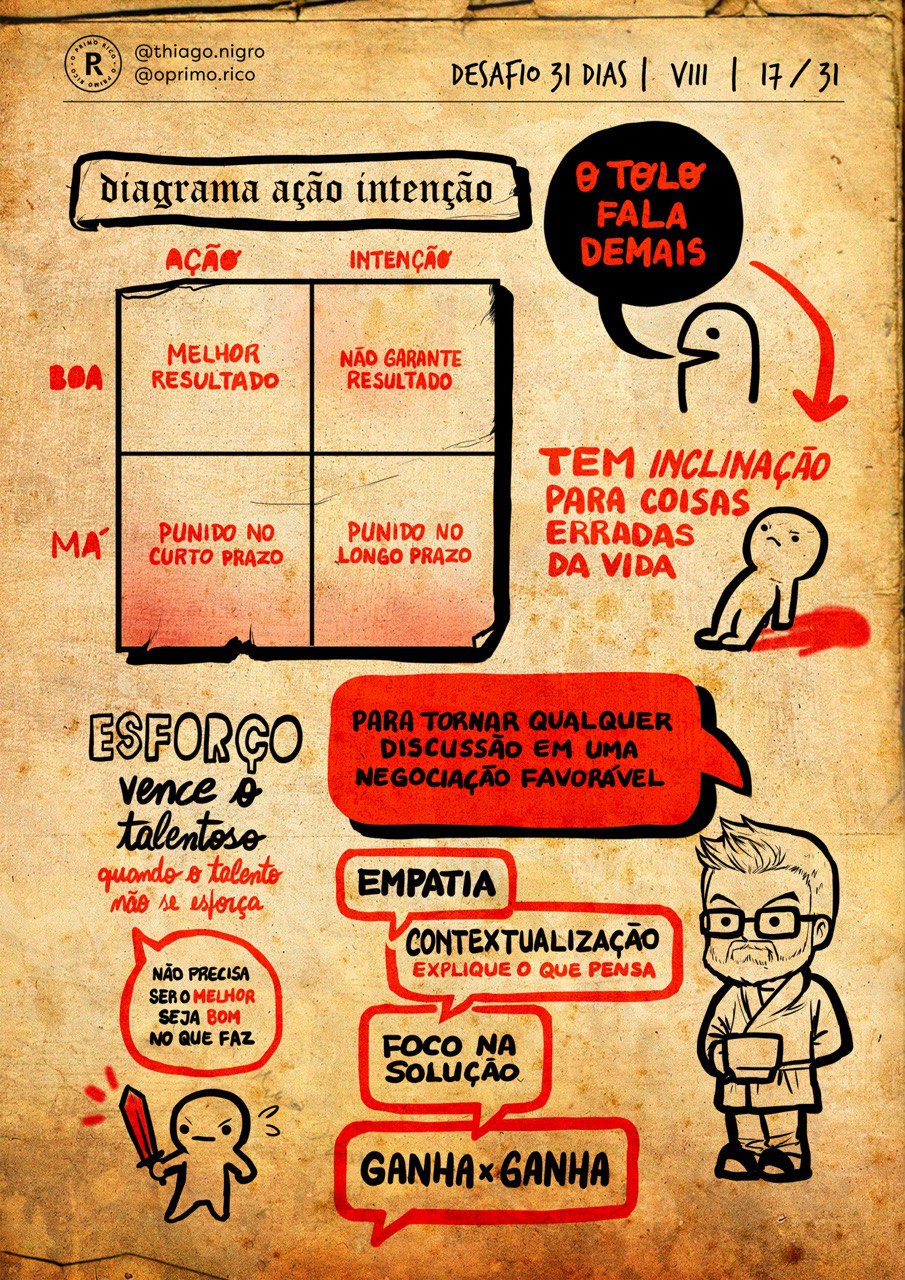 O PRIMO RICO • O PRIMO RICO •
R
@thiago.nigro
@oprimo.rico
DESAFIO 31 DIAS | VIII | 17 / 31
diagrama ação intenção
O TOLO
FALA
DEMAIS
AÇÃO
INTENÇÃO
BOA
MELHOR
RESULTADO
NÃO GARANTE
RESULTADO
MÁ
PUNIDO NO
CURTO PRAZO
PUNIDO NO
LONGO PRAZO
TEM INCLINAÇÃO
PARA COISAS
ERRADAS
DA VIDA
ESFORÇO
vence o
talentoso
quando o talento
não se esforça
NÃO PRECISA
SER O MELHOR
SEJA BOM
NO QUE FAZ
PARA TORNAR QUALQUER
DISCUSSÃO EM UMA
NEGOCIAÇÃO FAVORÁVEL
EMPATIA
CONTEXTUALIZAÇÃO
EXPLIQUE O QUE PENSA
FOCO NA
SOLUÇÃO
GANHA x GANHA